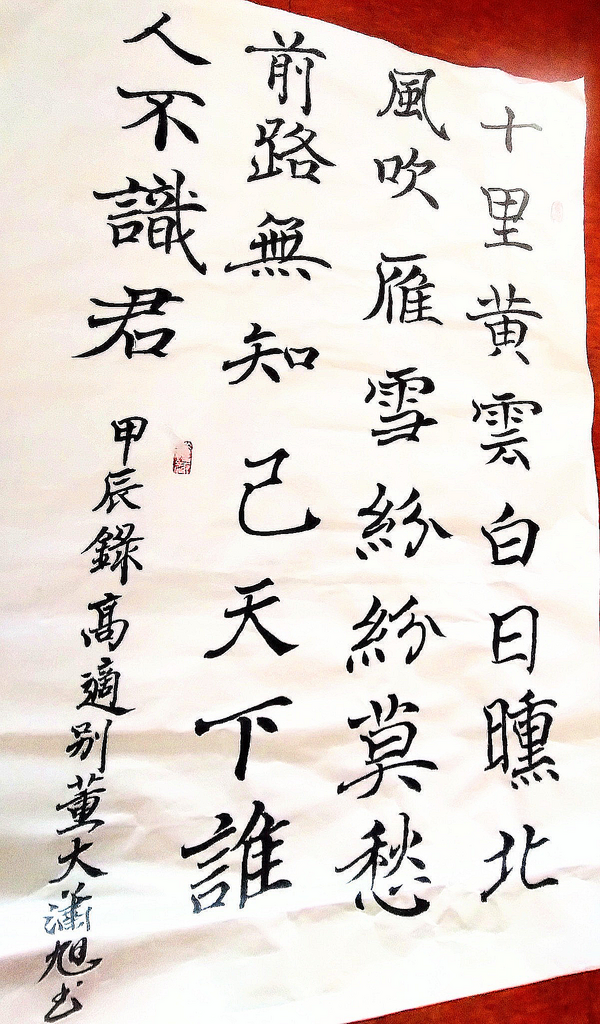 十里黄雲白日曛北
風吹雁雪紛紛莫愁
前路無知己天下誰
人不識君
甲辰錄高適别董大瀟旭书